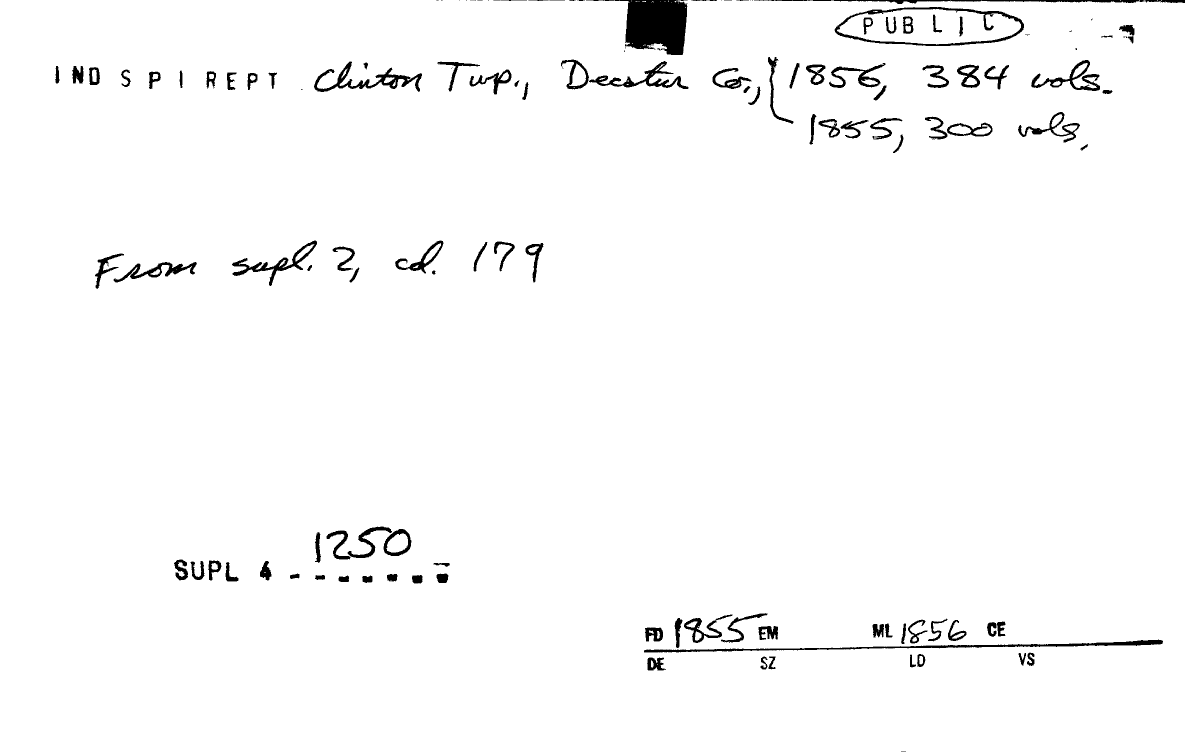 PUBLIC
IND SPI REPT Clinton Twp., Decatur Co., { 1856, 384 vols.
1855, 300 vols.
From supl. 2, cd. 179
1250
SUPL 4 - - - - - - -
FD 1855 EM ML 1856 CE
DE SZ LD VS